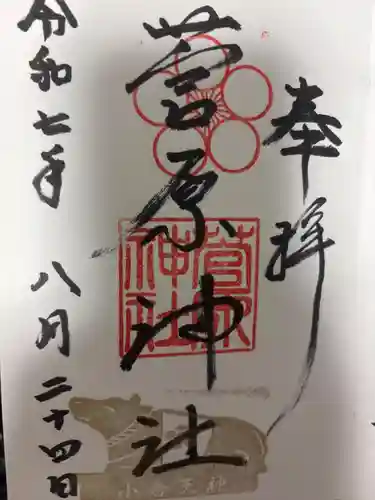 奉拝
菅原神社
菅原
神社
令和七年
八月
二十四日
小倉天神